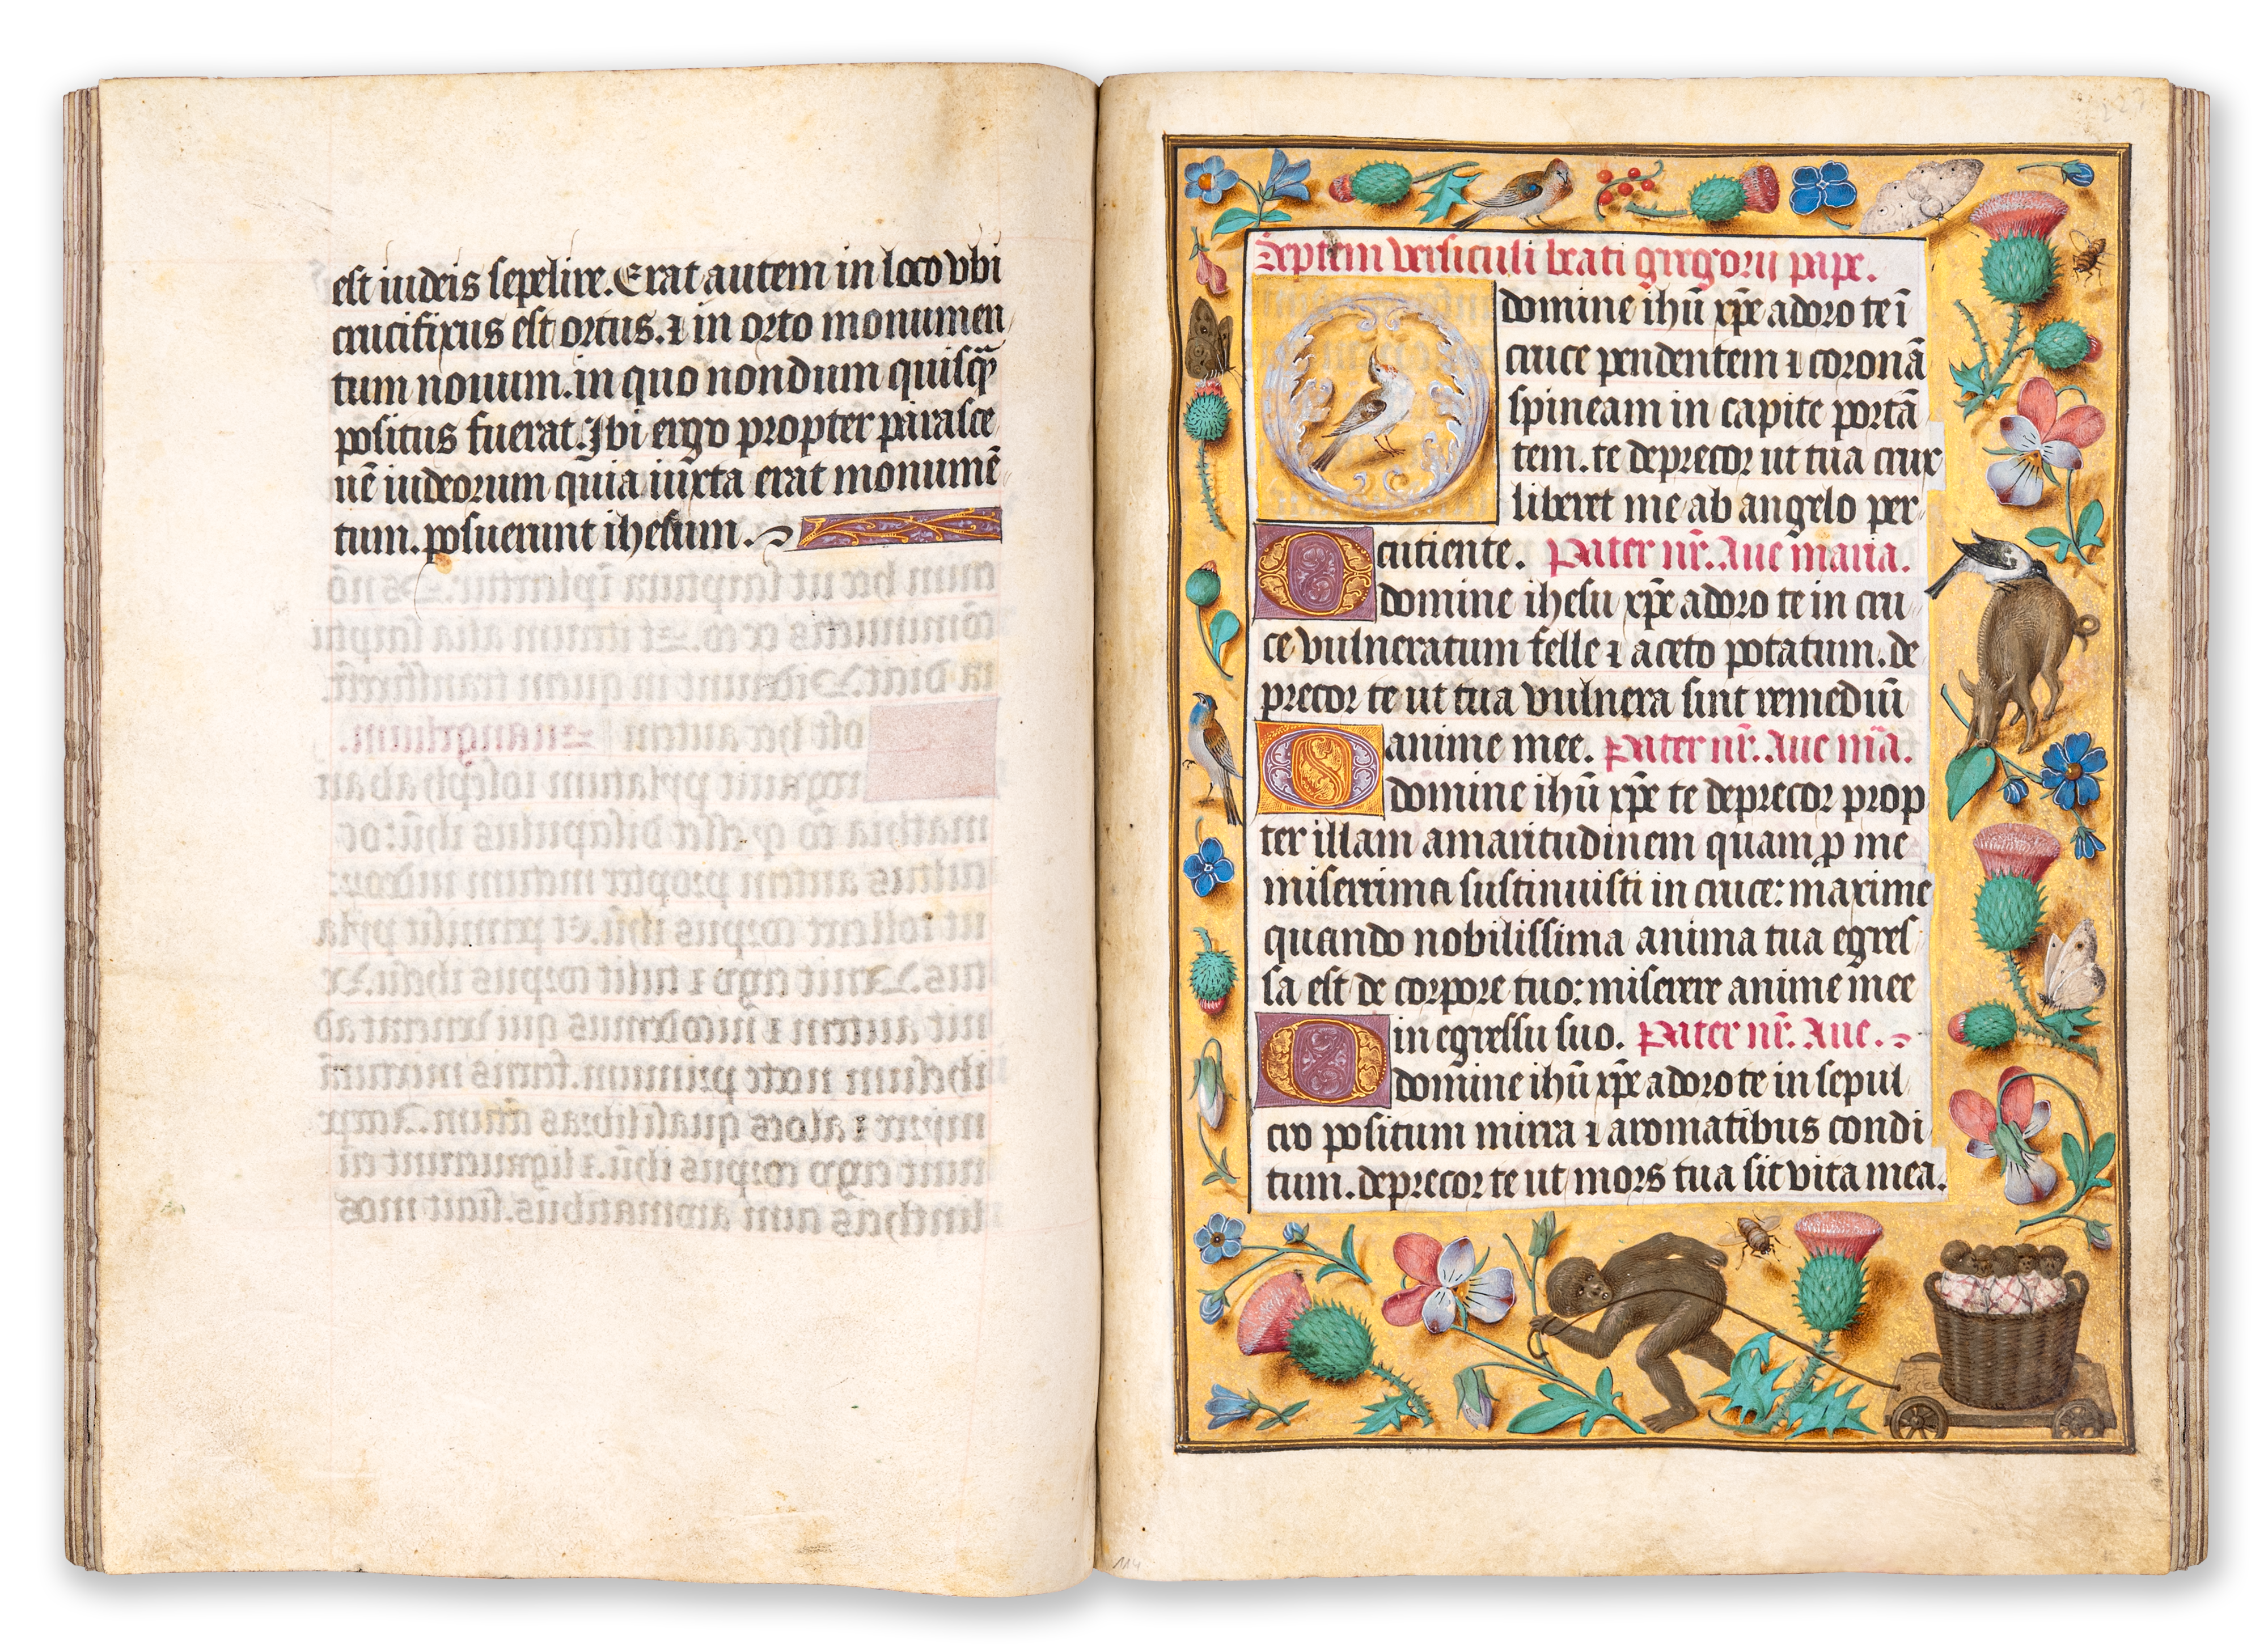 est iudeis sepelire. Erat autem in loco vbi
crucifixus est ortus. ⁊ in orto monumen
tum nouum. in quo nondum quisq̄
positus fuerat. Ibi ergo propter parasce
uē iudeorum quia iuxta erat monumē
tum. posuerunt ihesum.
Septem versiculi beati gregorii pape.
O domine ihū xp̄e adoro te ī
cruce pendentem ⁊ coronā
spineam in capite portā
tem. te deprecor ut tua crux
liberet me ab angelo per
cutiente. Pater nr̄. Aue maria.
O domine ihesu xp̄e adoro te in cru
ce vulneratum felle ⁊ aceto potatum. de
precor te ut tua vulnera sint remediū
anime mee. Pater nr̄. Aue mā.
O domine ihū xp̄e te deprecor prop
ter illam amaritudinem quam ꝑ me
miserrima sustinuisti in cruce: maxime
quando nobilissima anima tua egres
sa est de corpore tuo: miserere anime mee
in egressu suo. Pater nr̄. Aue.
O domine ihū xp̄e adoro te in sepul
cro positum mirra ⁊ aromatibus condi
tum. deprecor te ut mors tua sit vita mea.
114